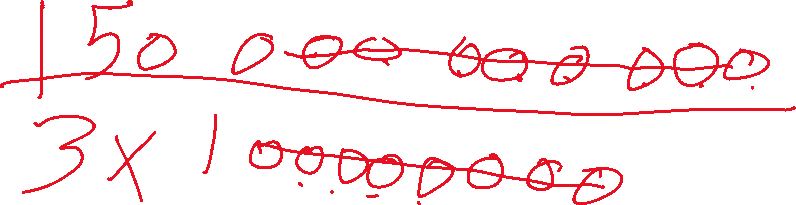 150 000 000 000
3 x 100000000